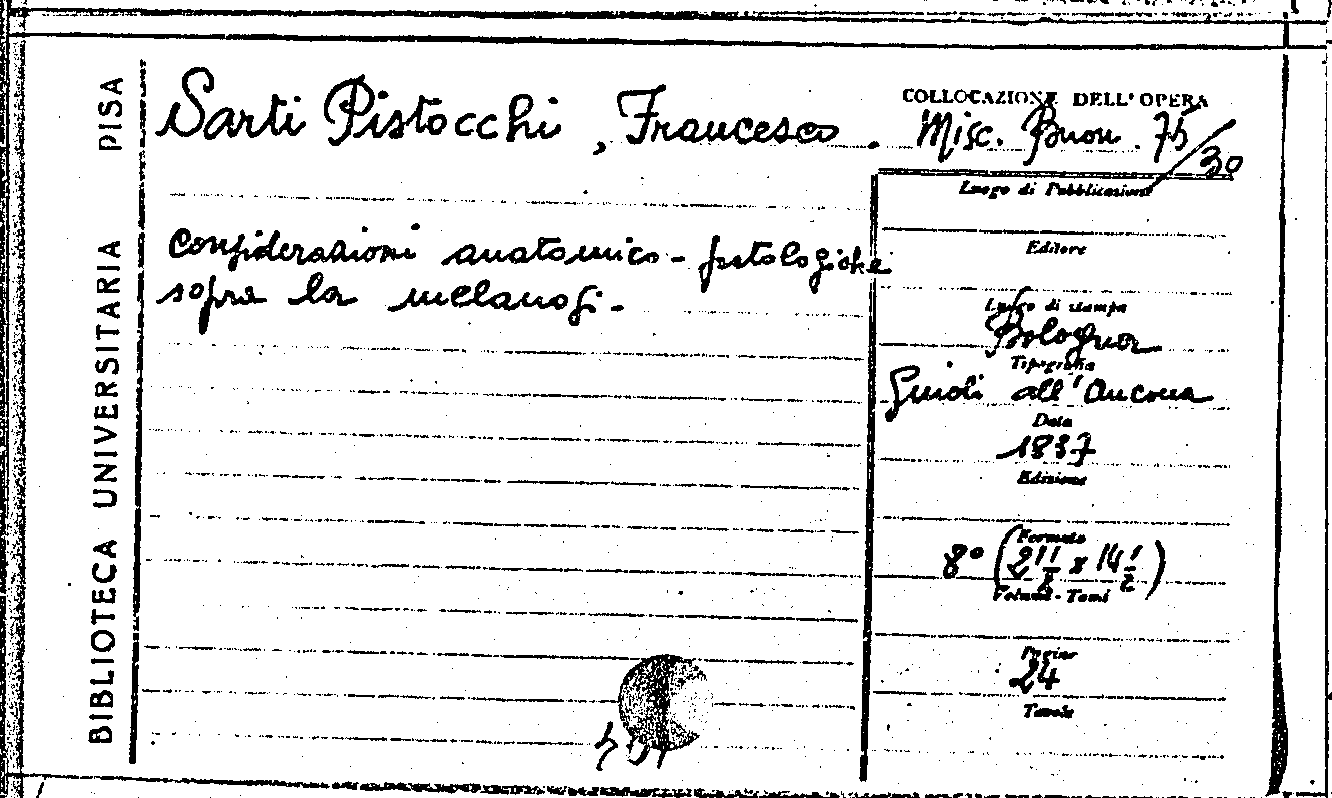 BIBLIOTECA UNIVERSITARIA PISA
Sarti Pistocchi, Francesco.
Considerazioni anatomico-patologiche
sopra la melanosi.
COLLOCAZIONE DELL'OPERA
Misc. Buon. 75/30
Luogo di Pubblicazione
Editore
Luogo di stampa
Bologna
Tipografia
Guidi all'Ancora
Data
1837
Edizione
Formato
8° (21 1/2 x 14 1/2)
Volumi - Tomi
Pagine
24
Tavole